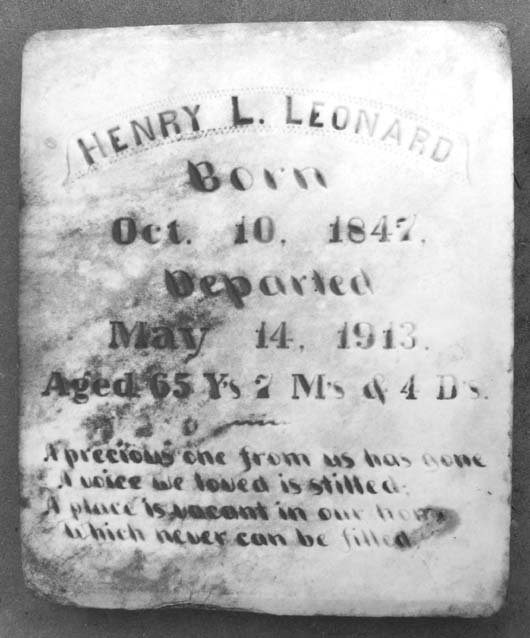 HENRY L. LEONARD
Born
Oct. 10, 1847.
Departed
May 14, 1913.
Aged 65 Ys 7 Ms & 4 Ds.
A precious one from us has gone
A voice we loved is stilled;
A place is vacant in our home
Which never can be filled.